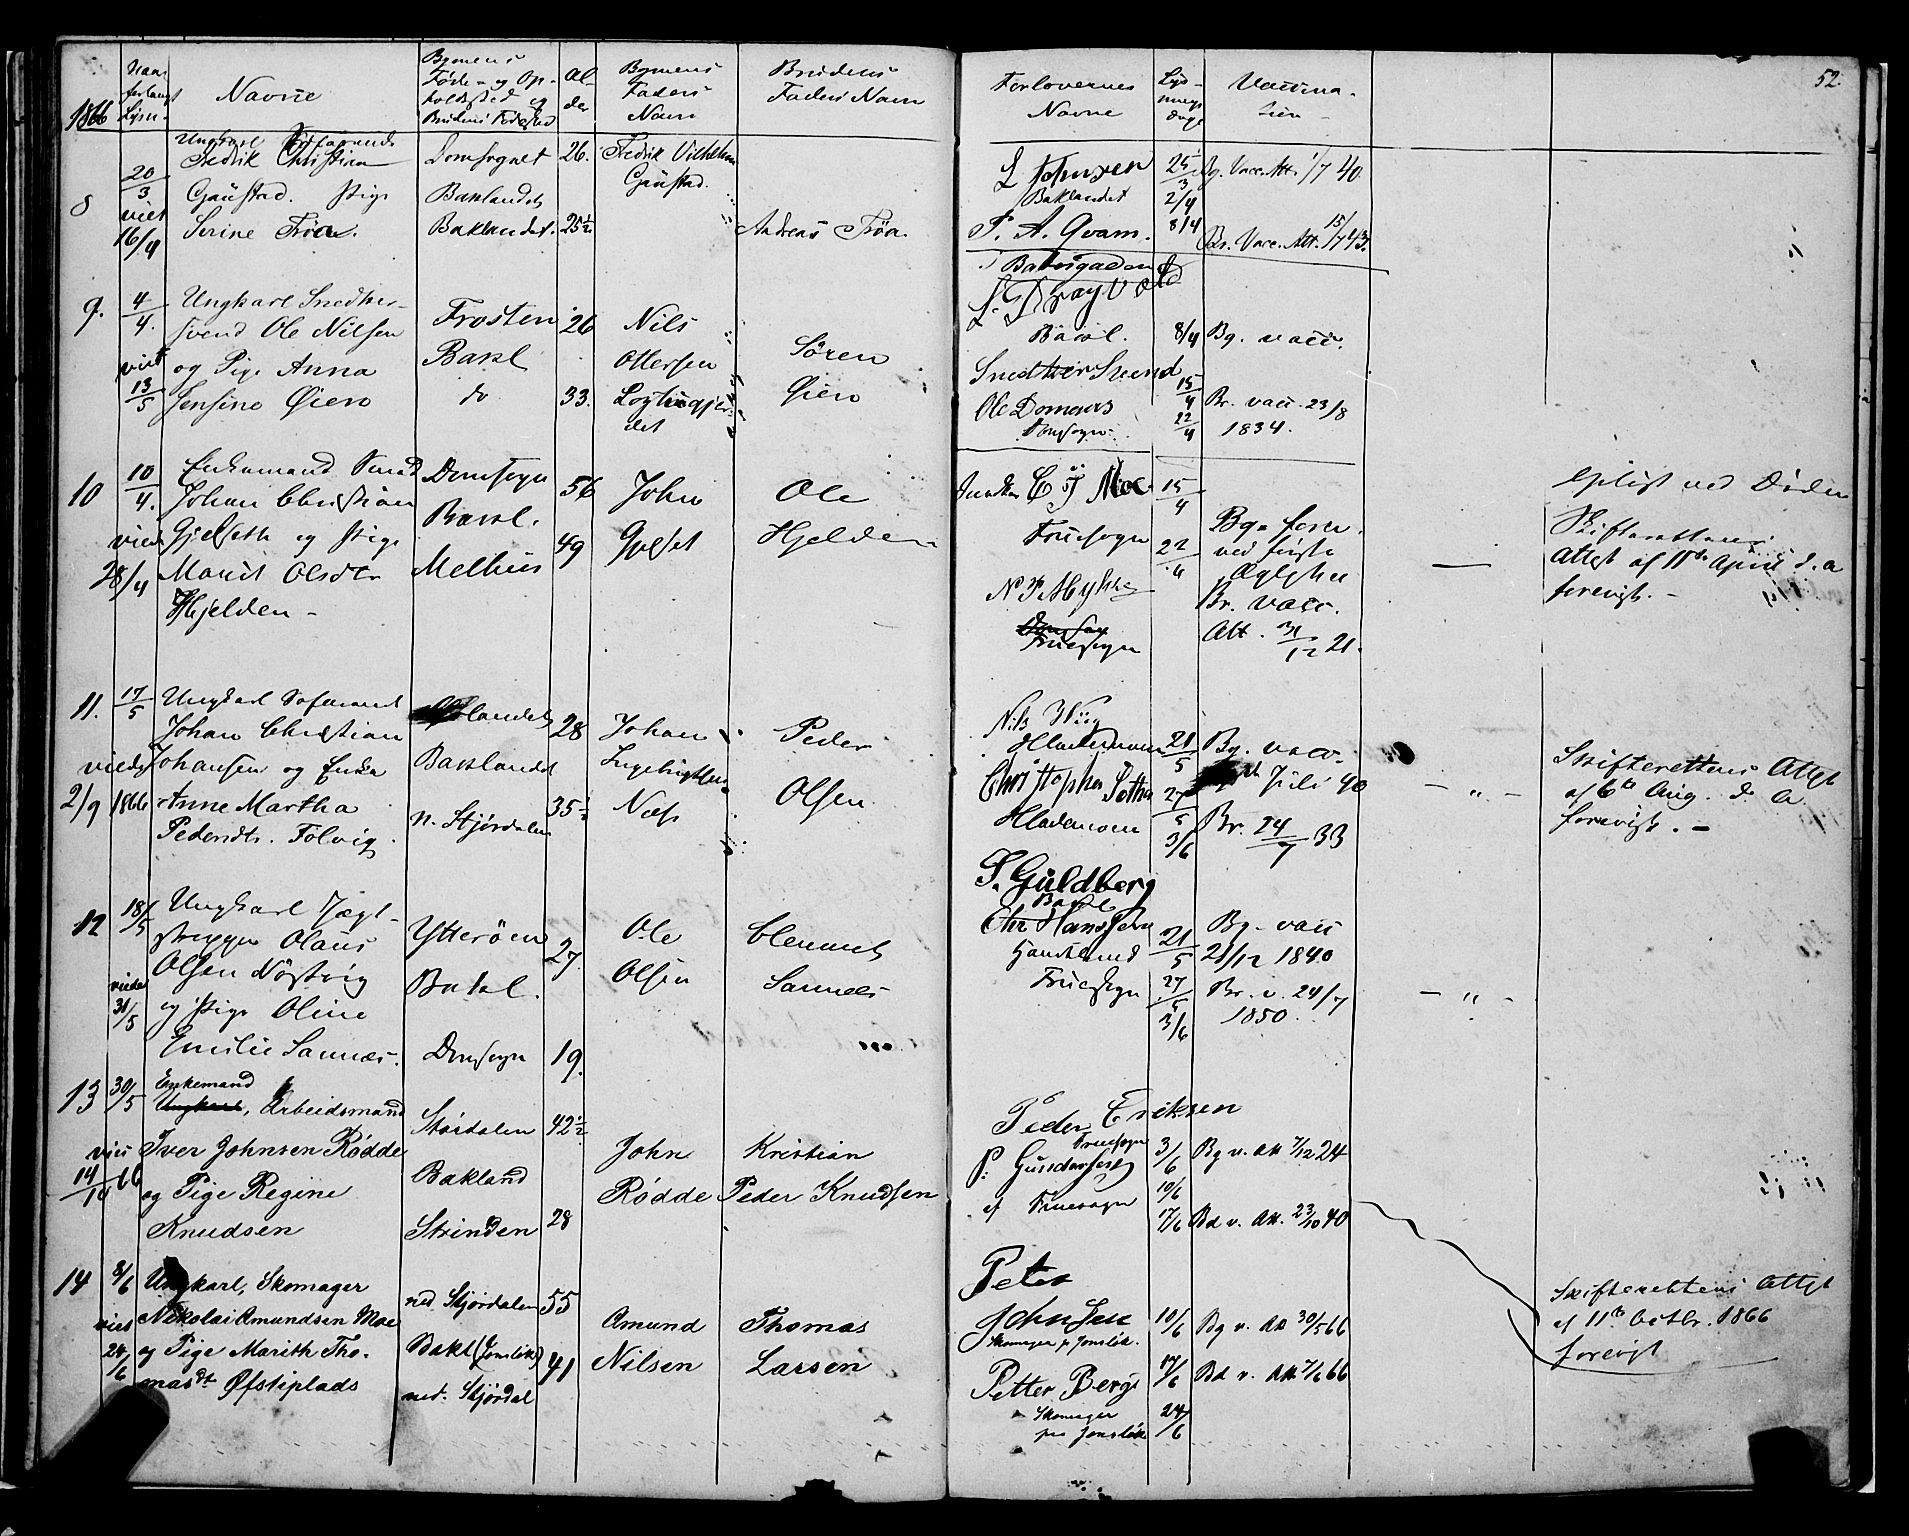 52.
1866
Naar forlangt Lysn.
Navne
Bgmens Føde- og Opholdssted og Brudens Fødested
Alder
Bgmens Faders Navn
Brudens Faders Navn
Forlovernes Navne
Lysningsdage
Vaccination
8
20/3
viet
16/4
Ungkarl
Fredrik Christian
Gaustad. Pige
Serine Frøa.
Domsognet
Baklandet
Baklandet.
26.
25½
Fredrik Vilhelm
Gaustad.
Andreas Frøa.
L Johnsen
Baklandet
P. A. Qvam.
Baklgaden
25/3
2/4
8/4
Bg. Vacc. Att. 1/7 40.
Br. Vacc. Att. 15/7 43.
9.
4/4.
viet
13/5
Ungkarl Snedker-
svend Ole Nilsen
og Pige Anna
Jensine Øien
Frosten
Bakl
do
26
33.
Nils
Ottersen
Søren
Øien
Bakl.
Snedker Svend
Ole
Domsogn.
8/4
15/4
22/4
Bg. vacc.
Br. vacc. 23/8
1834.
10
10/4.
viede
28/4
Enkemand Smed
Johan Christian
Gjelseth og Pige
Marit Olsdtr
Hjelden -
Domsogn
Bakl.
Melhus
56
49
John
Ole
Hjelden
Moe
Fruesogn
Fruesogn
15/4
22/4
Bg.
ved første
Ægteska
Br. vacc.
Att. 31/12 21.
ved Døden
Skifterettens
Attest af 11te April d. a
forevist. -
11.
17/5
viede
2/9 1866
Ungkarl Søemand
Johan Christian
Johansen og Enke
Anne Martha
Pedersdt. Følvig
Baklandet
n. Stjørdalen
28
35½
Johan
Ingebrigtsen
Næss
Peder
Olsen
Nils Wiig
Hlademoen
Christopher
Hlademoen
21/5
27/5
3/6
Bg. vacc.
Juli 40
Br. 24/7 33
- " -
Skifterettens Attest
af 6te Aug. d. A.
forevist. -
12
18/5
viede
31/5
Ungkarl Jægt-
skipper Olaus
Olsen Nøstvig
og Pige Oline
Emilie Sannæs.
Ytterøen
Bakl.
Domsogn
27
19.
Ole
Olsen
Clemmet
Sannæs
S. Guldberg
Bakl
Chr Hanssen
Handelsmd
Fruesogn
21/5
27/5
3/6
Bg. vacc
21/12 1840
Br. v. 24/7
1850.
- " -
13
30/5
viet
14/10 66
Enkemand
Ungkarl, Arbeidsmand
Iver Johnsen Rødde
og Pige Regine
Knudsen
Størdalen
Bakland
Strinden
42½
28
John
Rødde
Kristian
Peder Knudsen
Peder Eriksen
Fruesogn
P. Gundersen
af Fruesogn
3/6
10/6
17/6
Bg v. Att 7/12 24
Bd v. Att. 23/10 40
14
8/6
viet
24/6
Ungkarl, Skomager
Nikolai Amundsen Moe
og Pige Marith Tho-
masdt Øfstiplads
ned. Stjørdalen
Bakl (Jonsløk)
ned. Stjørdal
55
41
Amund
Nilsen
Thomas
Larsen
Peter
Johnsen
Skomager p. Jonsløk.
Petter Berg
Skomager
paa Jonsløk
10/6
17/6
24/6
Bg v. Att 30/5 66
Bd v. Att 7/6 66
Skifterettens Attest
af 11te Octbr. 1866
forevist